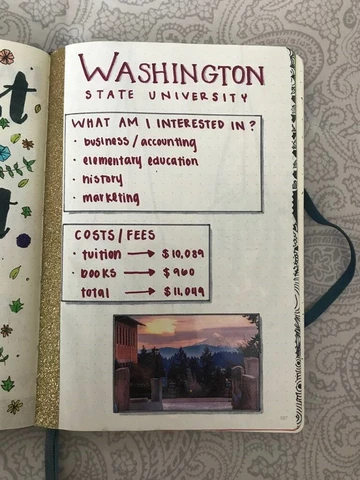 WASHINGTON
STATE UNIVERSITY
WHAT AM I INTERESTED IN?
· business / accounting
· elementary education
· history
· marketing
COSTS/FEES
· tuition → $10,089
· books → $960
total → $11,049